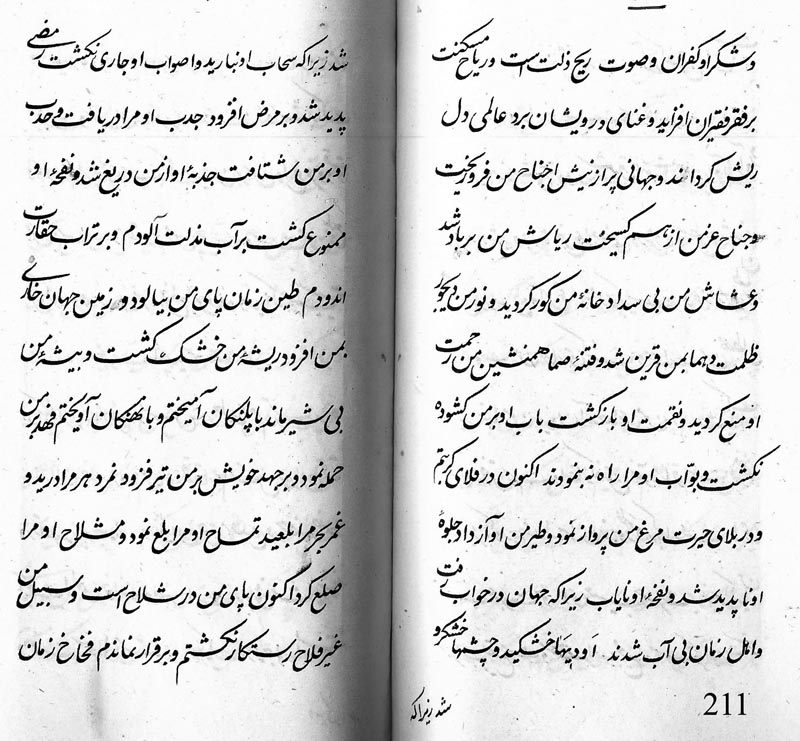 و شکر او کفران و صوت ریح ذلت است و ریاح مکنت
بر فقر فقیران افزاید و غنای درویشان برد عالمی دل
ریش کرداند و جهانی پر از نیش اجناح من فرو ریخت
و جناح عز من از هم کسیخت ریاش من بر باد شد
و عشاش من بی سداد خانه من کور کردید و نور من دیجور
ظلمت دهما بمن قرین شد و فتنه صما همنشین من رحمت
او منع کردید و نقمت او باز کشت باب او بر من کشوده
نکشت و بوّاب او مرا راه نه بنمودند اکنون در فلای کربتم
و در بلای حیرت مرغ من پرواز نمود و طیر من او آزداد جلوهٔ
او ناپدید شد و نفحهٔ او نایاب زیرا که جهان در خواب رفت
و اهل زمان بی آب شدند اودیها خشکید و چشمها خشکرو
شد زیرا که
211
شد زیرا که سحاب او نبارید و اصواب او جاری نکشت رمضی
پدید شد و بر مرض افزود جدب او مرا دریافت و حدب
او بر من شتافت جذبهٔ او از من دریغ شد و نفحهٔ او
ممنوع کشت بر آب مذلت آلودم و بر تراب حقارت
اندودم طین زمان پای من بیالود و زمین جهان خاری
بمن افزود ریشهٔ من خشک کشت و بیشهٔ من
بی شیر ماند با پلنکان آمیختم و با نهنکان آویختم فهد بر من
حمله نمود و بر جهد خویش بر من تیر فزود نمرد هر مرا درید و
غمر بحر مرا بلعید تمساح او مرا بلع نمود و مشلاح او مرا
صلع کرد اکنون پای من در شلاح است و سبیل من
غیر فلاح رستکار نکشتم و برقرار نماندم فخاخ زمان